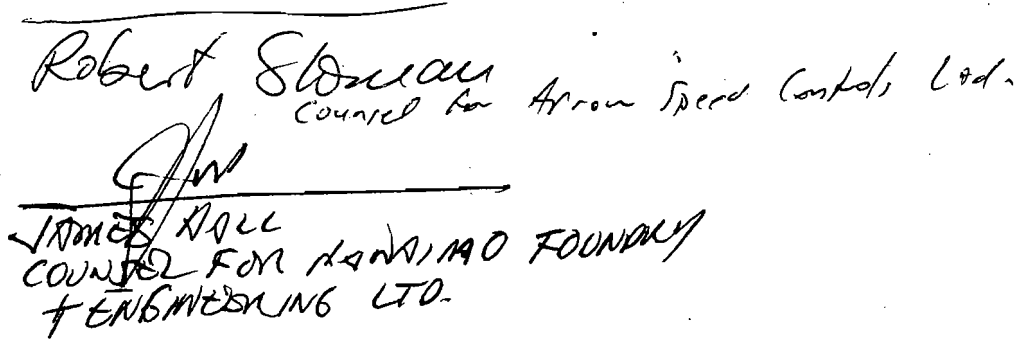 Robert Sloman
Counsel for Arrow Speed Controls Ltd.
JAMES HALL
COUNSEL FOR NANAIMO FOUNDRY
+ ENGINEERING LTD.